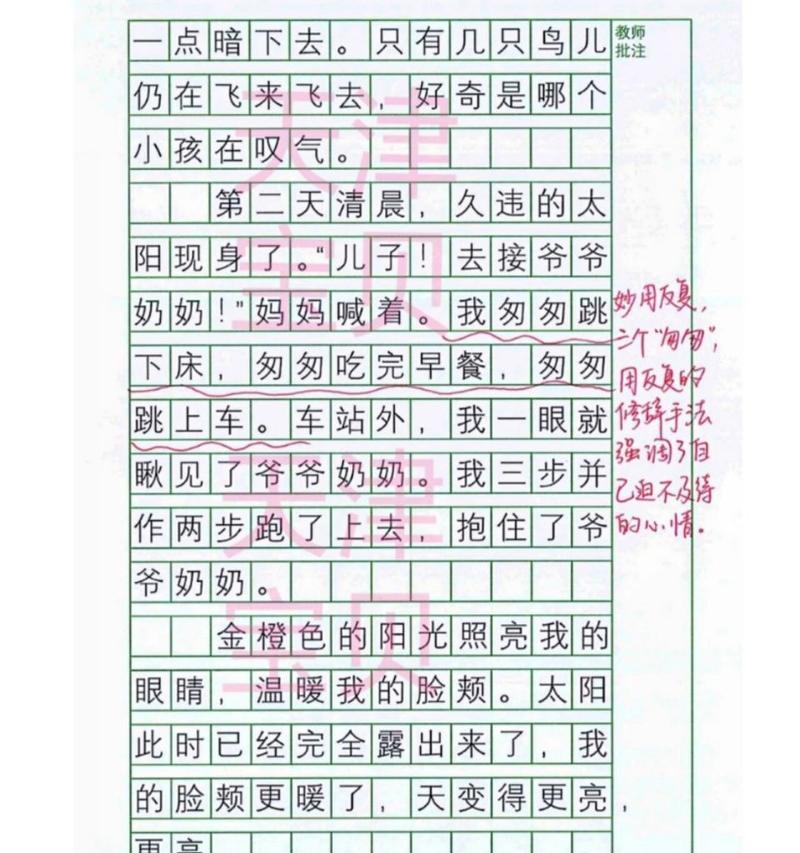 一点暗下去。只有几只鸟儿
教师
批注
仍在飞来飞去，好奇是哪个
小孩在叹气。
第二天清晨，久违的太
阳现身了。“儿子！去接爷爷
奶奶！”妈妈喊着。我匆匆跳
下床，匆匆吃完早餐，匆匆
跳上车。车站外，我一眼就
瞅见了爷爷奶奶。我三步并
作两步跑了上去，抱住了爷
爷奶奶。
金橙色的阳光照亮我的
眼睛，温暖我的脸颊。太阳
此时已经完全露出来了，我
的脸颊更暖了，天变得更亮，
更亮
妙用反复，
三个“匆匆”，
用反复的
修辞手法
强调了自
己迫不及待
的心情。
天津
宝贝
天津
宝贝